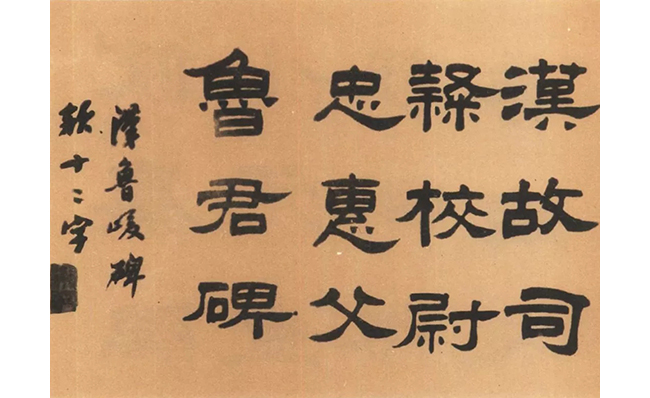 漢故司
隸校尉
忠惠父
魯君碑
漢魯峻碑
十二字